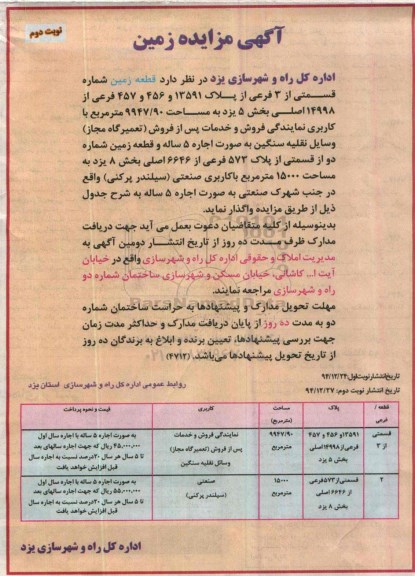 نوبت دوم
آگهی مزایده زمین
اداره کل راه و شهرسازی یزد در نظر دارد قطعه زمین شماره
قسمتی از ۳ فرعی از پلاک ۱۳۵۹۱ و ۴۵۶ و ۴۵۷ فرعی از
۱۴۹۹۸ اصلی بخش ۵ یزد به مساحت ۹۹۴۷/۹۰ مترمربع با
کاربری نمایندگی فروش و خدمات پس از فروش (تعمیرگاه مجاز)
وسایل نقلیه سنگین به صورت اجاره ۵ ساله و قطعه زمین شماره
دو از قسمتی از پلاک ۵۷۳ فرعی از ۶۶۴۶ اصلی بخش ۸ یزد به
مساحت ۱۵۰۰۰ مترمربع باکاربری صنعتی (سیلندر پرکنی) واقع
در جنب شهرک صنعتی به صورت اجاره ۵ ساله به شرح جدول
ذیل از طریق مزایده واگذار نماید.
بدینوسیله از کلیه متقاضیان دعوت بعمل می آید جهت دریافت
مدارک ظرف مدت ده روز از تاریخ انتشار دومین آگهی به
مدیریت املاک و حقوقی اداره کل راه و شهرسازی واقع در خیابان
آیت ا... کاشانی، خیابان مسکن و شهرسازی ساختمان شماره دو
راه و شهرسازی مراجعه نمایند.
مهلت تحویل مدارک و پیشنهادها به حراست ساختمان شماره
دو به مدت ده روز از پایان دریافت مدارک و حداکثر مدت زمان
جهت بررسی پیشنهادها، تعیین برنده و ابلاغ به برندگان ده روز
از تاریخ تحویل پیشنهادها می‌باشد. (۴۷۱۲)
تاریخ انتشار نوبت اول: ۹۴/۱۲/۲۴
روابط عمومی اداره کل راه و شهرسازی استان یزد
تاریخ انتشار نوبت دوم: ۹۴/۱۲/۲۷
قطعه / فرعی پلاک مساحت (مترمربع) کاربری قیمت و نحوه پرداخت
قسمتی از ۳ ۱۳۵۹۱ و ۴۵۶ و ۴۵۷ فرعی از ۱۴۹۹۸ اصلی بخش ۵ یزد ۹۹۴۷/۹۰ مترمربع نمایندگی فروش و خدمات پس از فروش (تعمیرگاه مجاز) وسائل نقلیه سنگین به صورت اجاره ۵ ساله با اجاره سال اول ۴۵,۰۰۰,۰۰۰ ریال که جهت اجاره سالهای بعد تا ۵ سال هر سال ۲۰درصد نسبت به اجاره سال قبل افزایش خواهد یافت
۲ قسمتی از ۵۷۳ فرعی از ۶۶۴۶ اصلی بخش ۸ یزد ۱۵۰۰۰ مترمربع صنعتی (سیلندر پرکنی) به صورت اجاره ۵ ساله با اجاره سال اول ۵۵,۰۰۰,۰۰۰ ریال که جهت اجاره سالهای بعد تا ۵ سال هر سال ۲۰درصد نسبت به اجاره سال قبل افزایش خواهد یافت
اداره کل راه و شهرسازی یزد